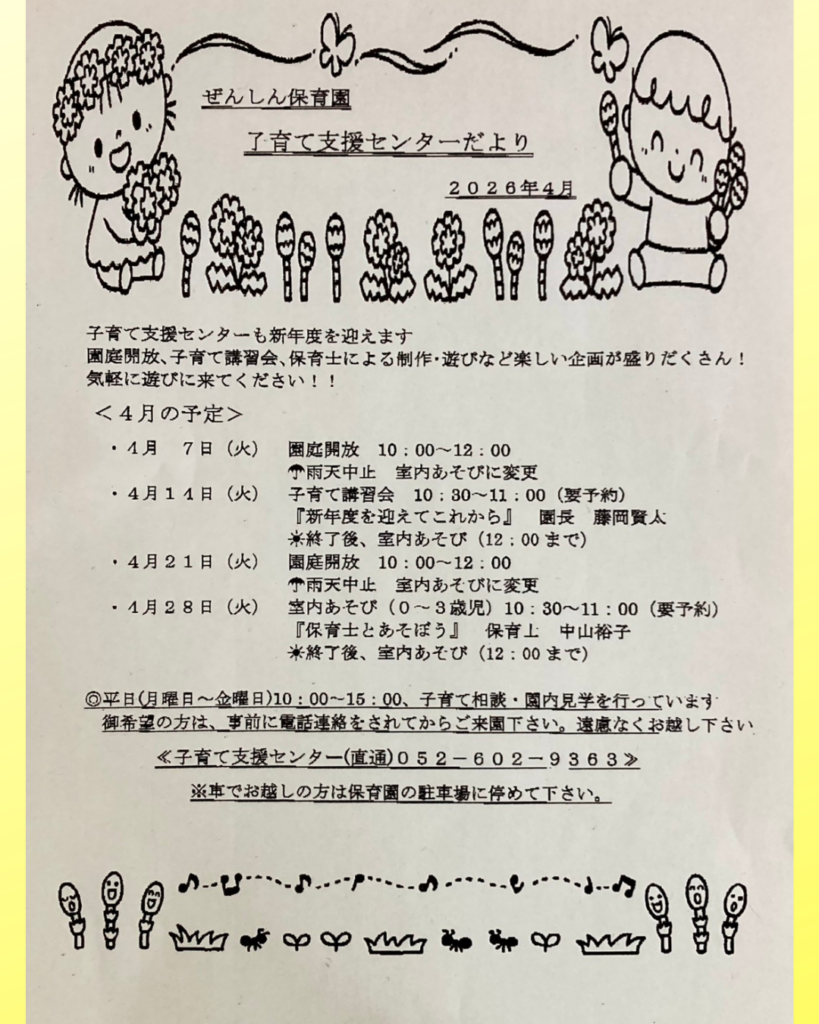 ぜんしん保育園
子育て支援センターだより
２０２６年４月
子育て支援センターも新年度を迎えます
園庭開放、子育て講習会、保育士による制作・遊びなど楽しい企画が盛りだくさん！
気軽に遊びに来てください！！
＜４月の予定＞
・４月　７日（火）　園庭開放　10：00～12：00
☂雨天中止　室内あそびに変更
・４月１４日（火）　子育て講習会　10：30～11：00（要予約）
『新年度を迎えてこれから』　園長　藤岡賢太
☀終了後、室内あそび（12：00まで）
・４月２１日（火）　園庭開放　10：00～12：00
☂雨天中止　室内あそびに変更
・４月２８日（火）　室内あそび（０～３歳児）10：30～11：00（要予約）
『保育士とあそぼう』　保育士　中山裕子
☀終了後、室内あそび（12：00まで）
◎平日(月曜日～金曜日)10：00～15：00、子育て相談・園内見学を行っています
御希望の方は、事前に電話連絡をされてからご来園下さい。遠慮なくお越し下さい
≪子育て支援センター(直通)０５２－６０２－９３６３≫
※車でお越しの方は保育園の駐車場に停めて下さい。